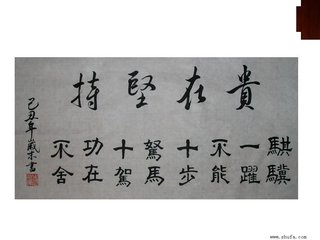 貴在堅持
騏驥
一躍
不能
十步
駑馬
十駕
功在
不舍
己丑年
www.shufa.com